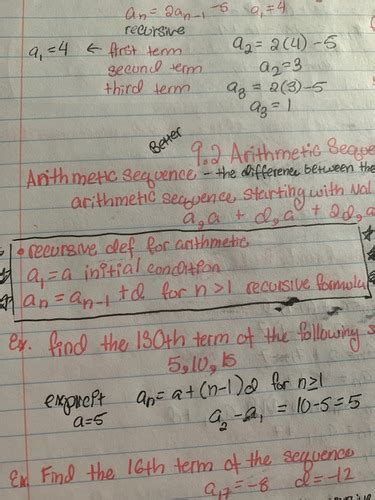 an = 2an-1 -5 a1 = 4
recursive
a1 = 4 ← first term a2 = 2(4) - 5
second term a2 = 3
third term a3 = 2(3) - 5
a3 = 1
Better
9.2 Arithmetic Seque
Arithmetic sequence - the difference between the
arithmetic sequence starting with val
a, a + d, a + 2d, a
• recursive def. for arithmetic
a1 = a initial condition
an = an-1 + d for n > 1 recursive formula
Ex. find the 130th term of the following s
5, 10, 15
an = a + (n-1)d for n ≥ 1
a = 5 a2 - a1 = 10 - 5 = 5
Ex Find the 16th term of the sequence
a17 = -8 d = -12